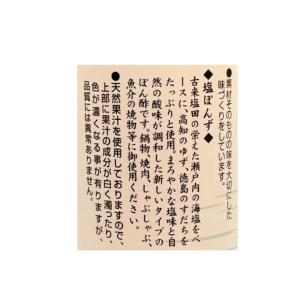 ●素材そのものの味を大切にした
味づくりをしています。
◆塩ぽんず◆
古来塩田の栄えた瀬戸内の海塩をベ
ースに、高知のゆず、徳島のすだちを
たっぷりと使用。まろやかな塩味と自
然の酸味が調和した新しいタイプの
ぽん酢です。鍋物、焼肉、しゃぶしゃぶ、
魚介の焼物等に御使用ください。
●天然果汁を使用しておりますので、
上部に果汁の成分が白く濁ったり、
色が濃くなる事が有りますが、
品質には異常ありません。